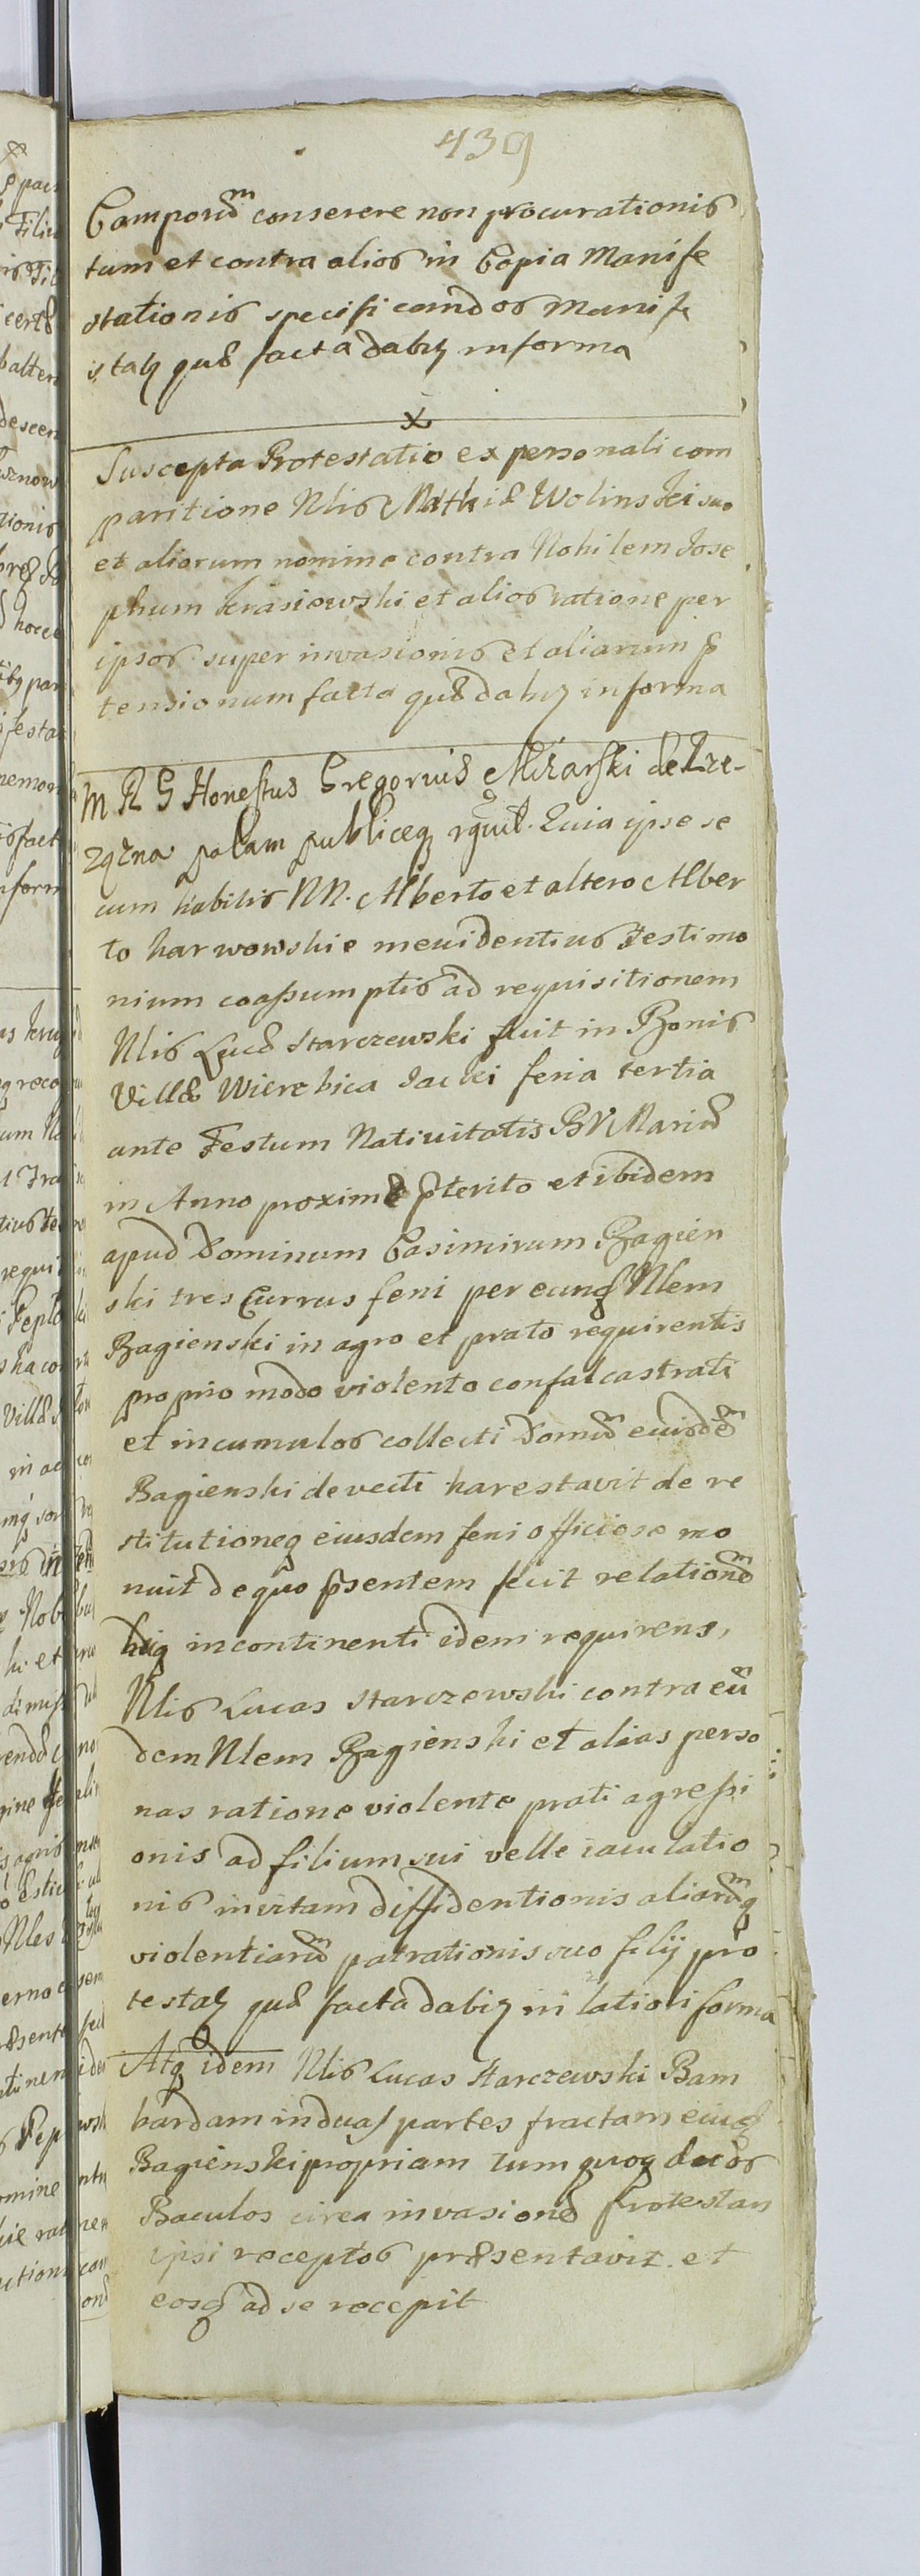 439
Camporum conserere non procurationis
tum et contra alios in Copia Manife
stationis specificandos manife
statq quae facta dabitq in forma
Suscepta Protestatio ex personali com
paritione Nlis Mathiae Wolinski suo
et aliorum nomine contra Nobilem Jose
phum Krasiowski et alios ratione per
ipsos super invasionis et aliarum p
tensionum facta quae dabitq in forma
M R G Honestus Gregorius Mizarski de
palam publiceq rgvit. Quia ipse se
cum habitis NN. Alberto et altero Alber
to harwowskie in evidentius Testimo
nium coassumptis ad requisitionem
Nlis Lucae Starczewski fuit in Bonis
Villae Wierzbica Jacki feria tertia
ante Festum Nativitatis BV Mariae
in Anno proximae pterito et ibidem
apud Dominum Casimirum Bagien
ski tres Currus feni per eundq Nlem
Bagienski in agro et prato requirentis
proprio modo violento confalcastrati
et in cumulos collecti Domum eiusdem
Bagienski devecti harestavit de re
stitutioneq eiusdem feni officiose mo
nuit de quo psentem fecit relationem
hicq in continenti idem requirens,
Nlis Lucas Starczewski contra eun
dem Nlem Bagienski et alias perso
nas ratione violente prati agressi
onis ad filium sui velle iaculatio
nis in vitam diffidentionis aliarumq
violentiarum patrationis suo filij pro
testatq quae facta dabitq in latiori forma
Atq idem Nlis Lucas Starczewski Bam
bardam in duas partes fractam eiusq
Bagienski propriam tum quoq duos
Baculos circa invasionem Protestan
ipsi receptos praesentavit et
eosq ad se recepit